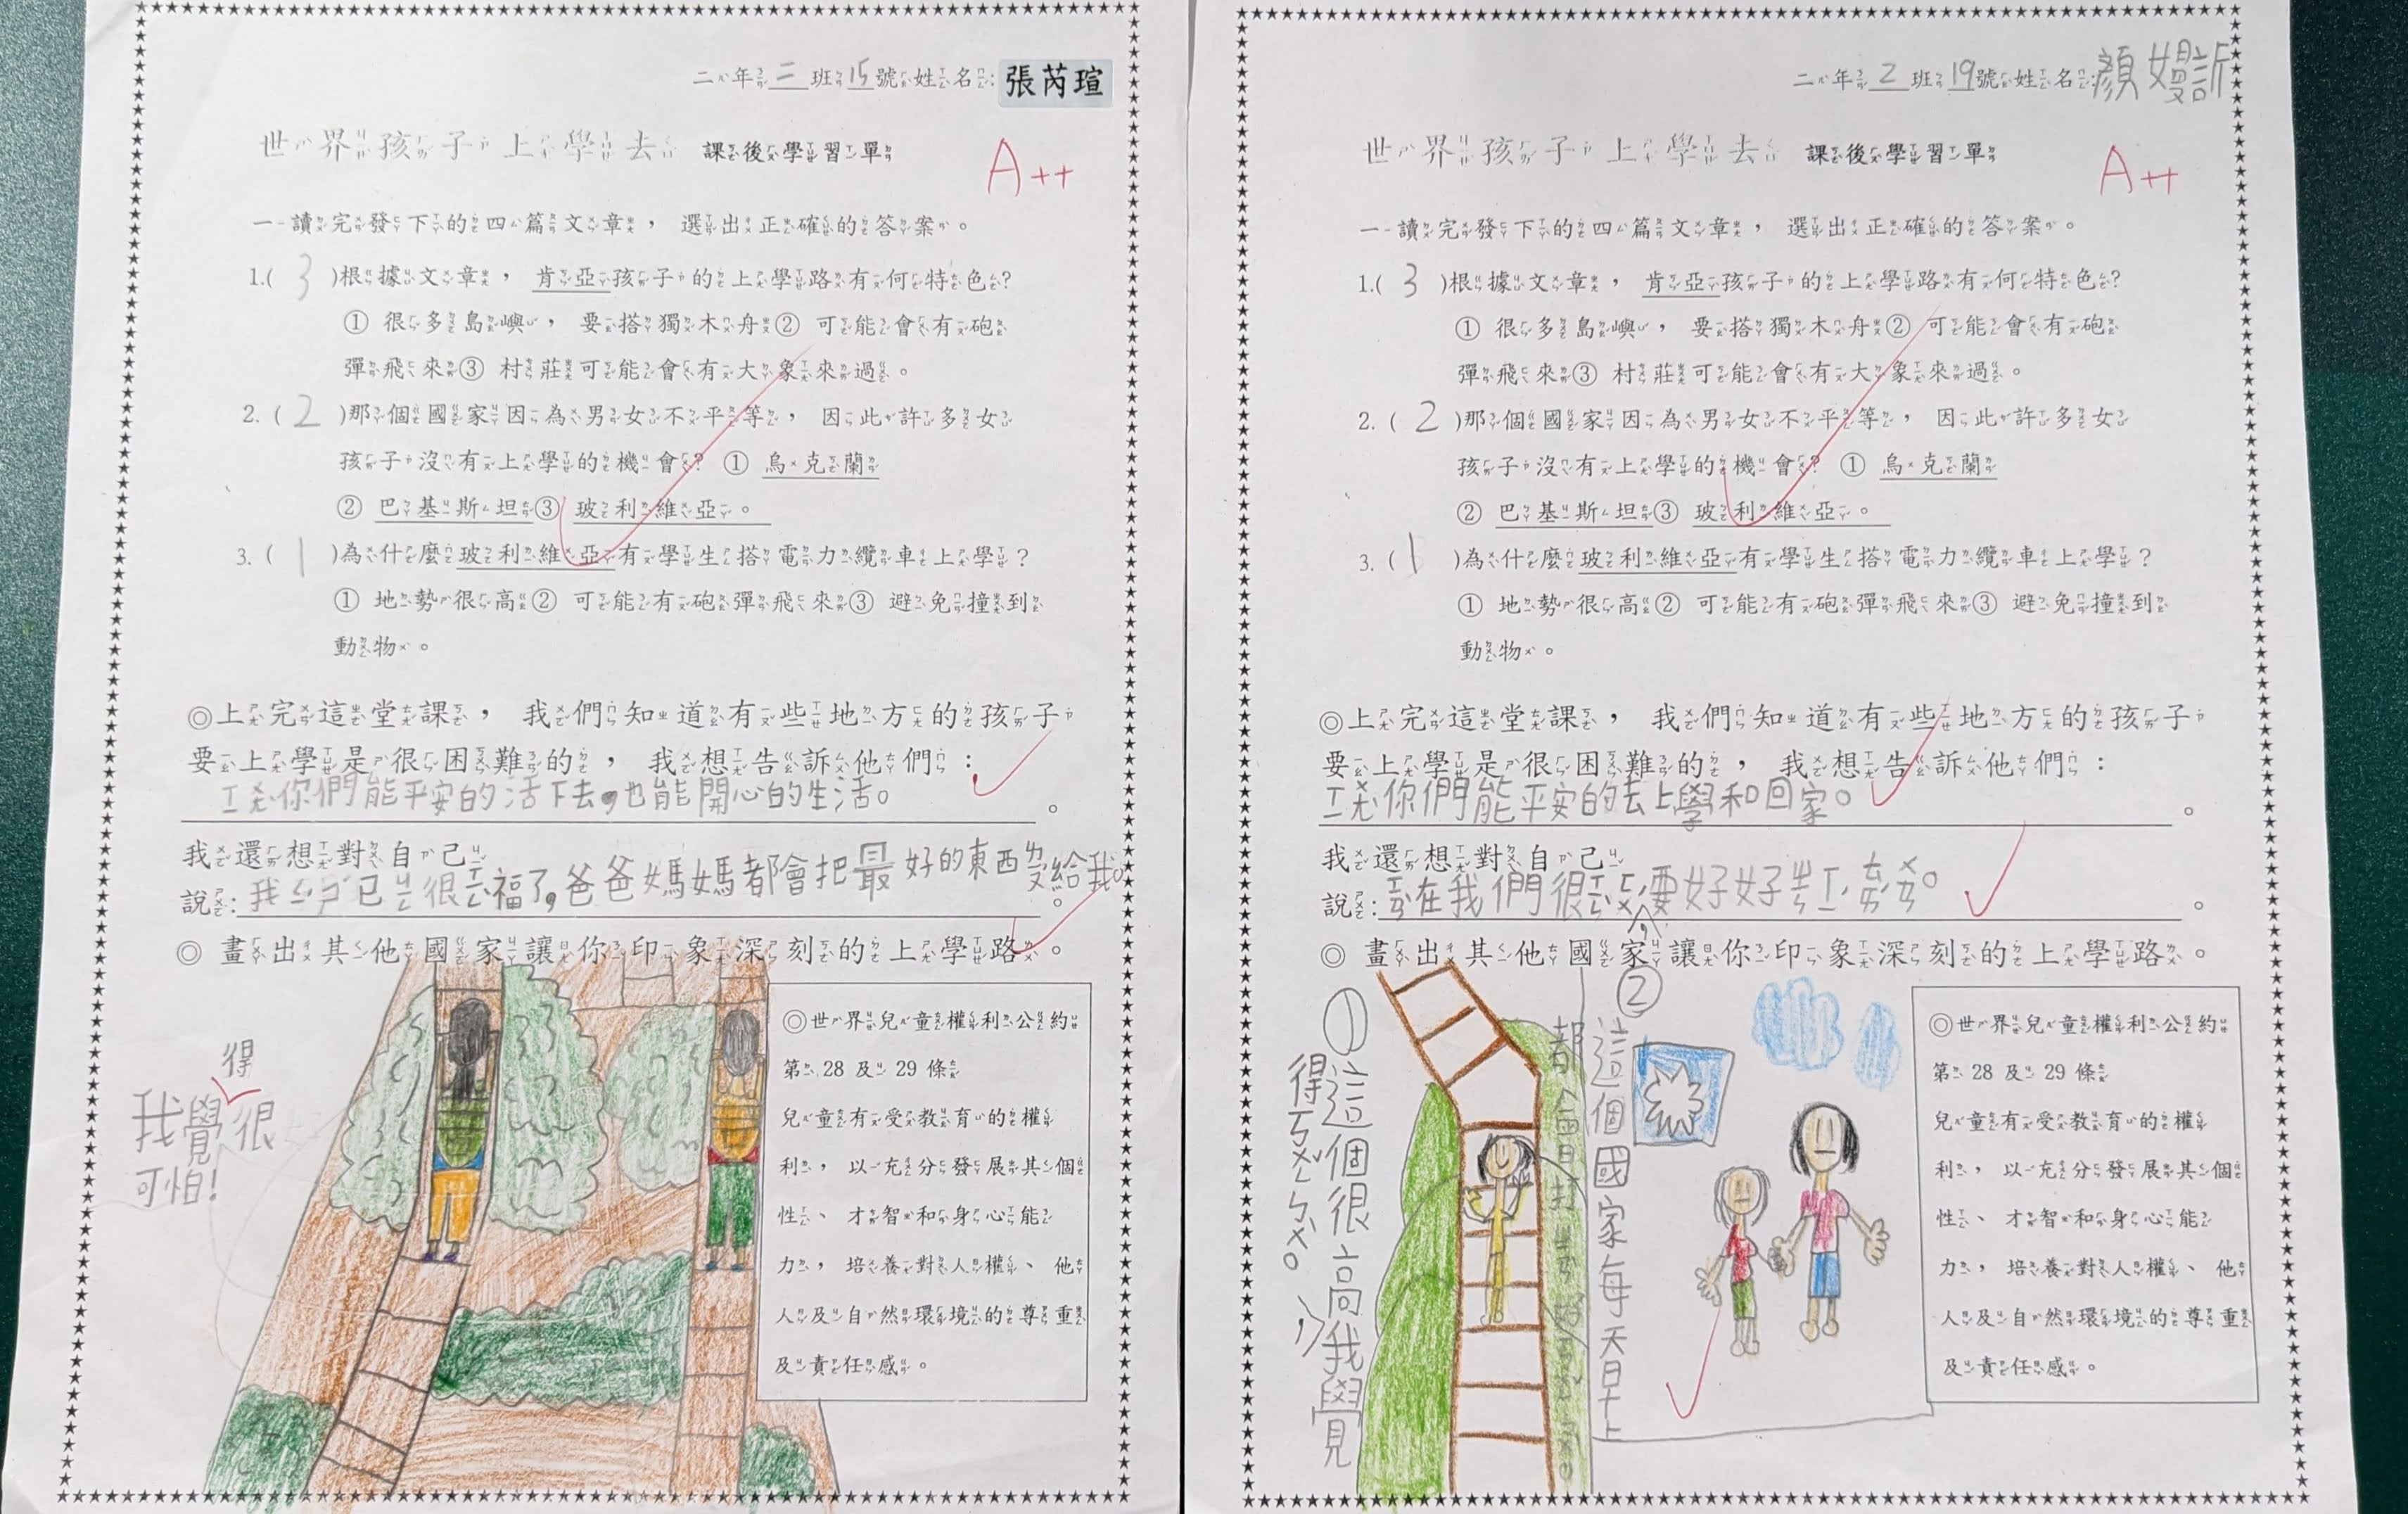 二年二班15號姓名:張芮瑄
世界孩子上學去 課後學習單
A++
一讀完發下的四篇文章，選出正確的答案。
1.(3)根據文章，肯亞孩子的上學路有何特色?
① 很多島嶼，要搭獨木舟② 可能會有砲
彈飛來③ 村莊可能會有大象來過。
2.(2)那個國家因為男女不平等，因此許多女
孩子沒有上學的機會? ① 烏克蘭
② 巴基斯坦③ 玻利維亞。
3.(1)為什麼玻利維亞有學生搭電力纜車上學?
① 地勢很高② 可能有砲彈飛來③ 避免撞到
動物。
◎上完這堂課，我們知道有些地方的孩子
要上學是很困難的，我想告訴他們:
ㄒㄧ ㄨㄤˋ你們能平安的活下去,也能開心的生活。
我還想對自己
說:我 已 很 福了,爸爸媽媽都會把最好的東西 給我。
◎ 畫出其他國家讓你印象深刻的上學路。
我覺得很
可怕!
◎世界兒童權利公約
第 28 及 29 條
兒童有受教育的權
利，以充分發展其個
性、才智和身心能
力，培養對人權、他
人及自然環境的尊重
及責任感。
二年2班19號姓名:顏嫚訢
世界孩子上學去 課後學習單
A++
一讀完發下的四篇文章，選出正確的答案。
1.(3)根據文章，肯亞孩子的上學路有何特色?
① 很多島嶼，要搭獨木舟② 可能會有砲
彈飛來③ 村莊可能會有大象來過。
2.(2)那個國家因為男女不平等，因此許多女
孩子沒有上學的機會? ① 烏克蘭
② 巴基斯坦③ 玻利維亞。
3.(1)為什麼玻利維亞有學生搭電力纜車上學?
① 地勢很高② 可能有砲彈飛來③ 避免撞到
動物。
◎上完這堂課，我們知道有些地方的孩子
要上學是很困難的，我想告訴他們:
ㄒㄧ ㄨㄤˋ你們能平安的去上學和回家。
我還想對自己
說: 在我們很 要好好
◎ 畫出其他國家讓你印象深刻的上學路。
①這個很高我覺
得
②這個國家每天早上
都會
◎世界兒童權利公約
第 28 及 29 條
兒童有受教育的權
利，以充分發展其個
性、才智和身心能
力，培養對人權、他
人及自然環境的尊重
及責任感。